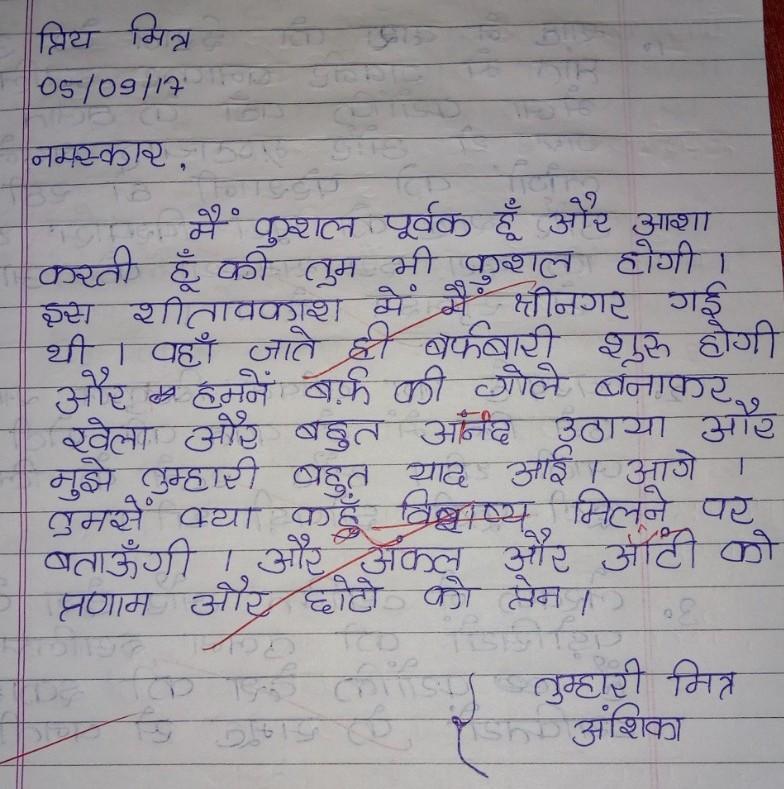 प्रिय मित्र
05/09/17
नमस्कार,
मैं कुशल पूर्वक हूँ और आशा
करती हूँ की तुम भी कुशल होगी।
इस शीतावकाश में मैं श्रीनगर गई
थी। वहाँ जाते ही बर्फबारी शुरू होगी
और हमनें बर्फ़ की गोले बनाकर
खेला और बहुत आनंद उठाया और
मुझे तुम्हारी बहुत याद आई। आगे।
तुमसें क्या कहूँ मिलने पर
बताऊँगी। और अंकल और आंटी को
प्रणाम और छोटो को प्रेम।
तुम्हारी मित्र
अंशिका